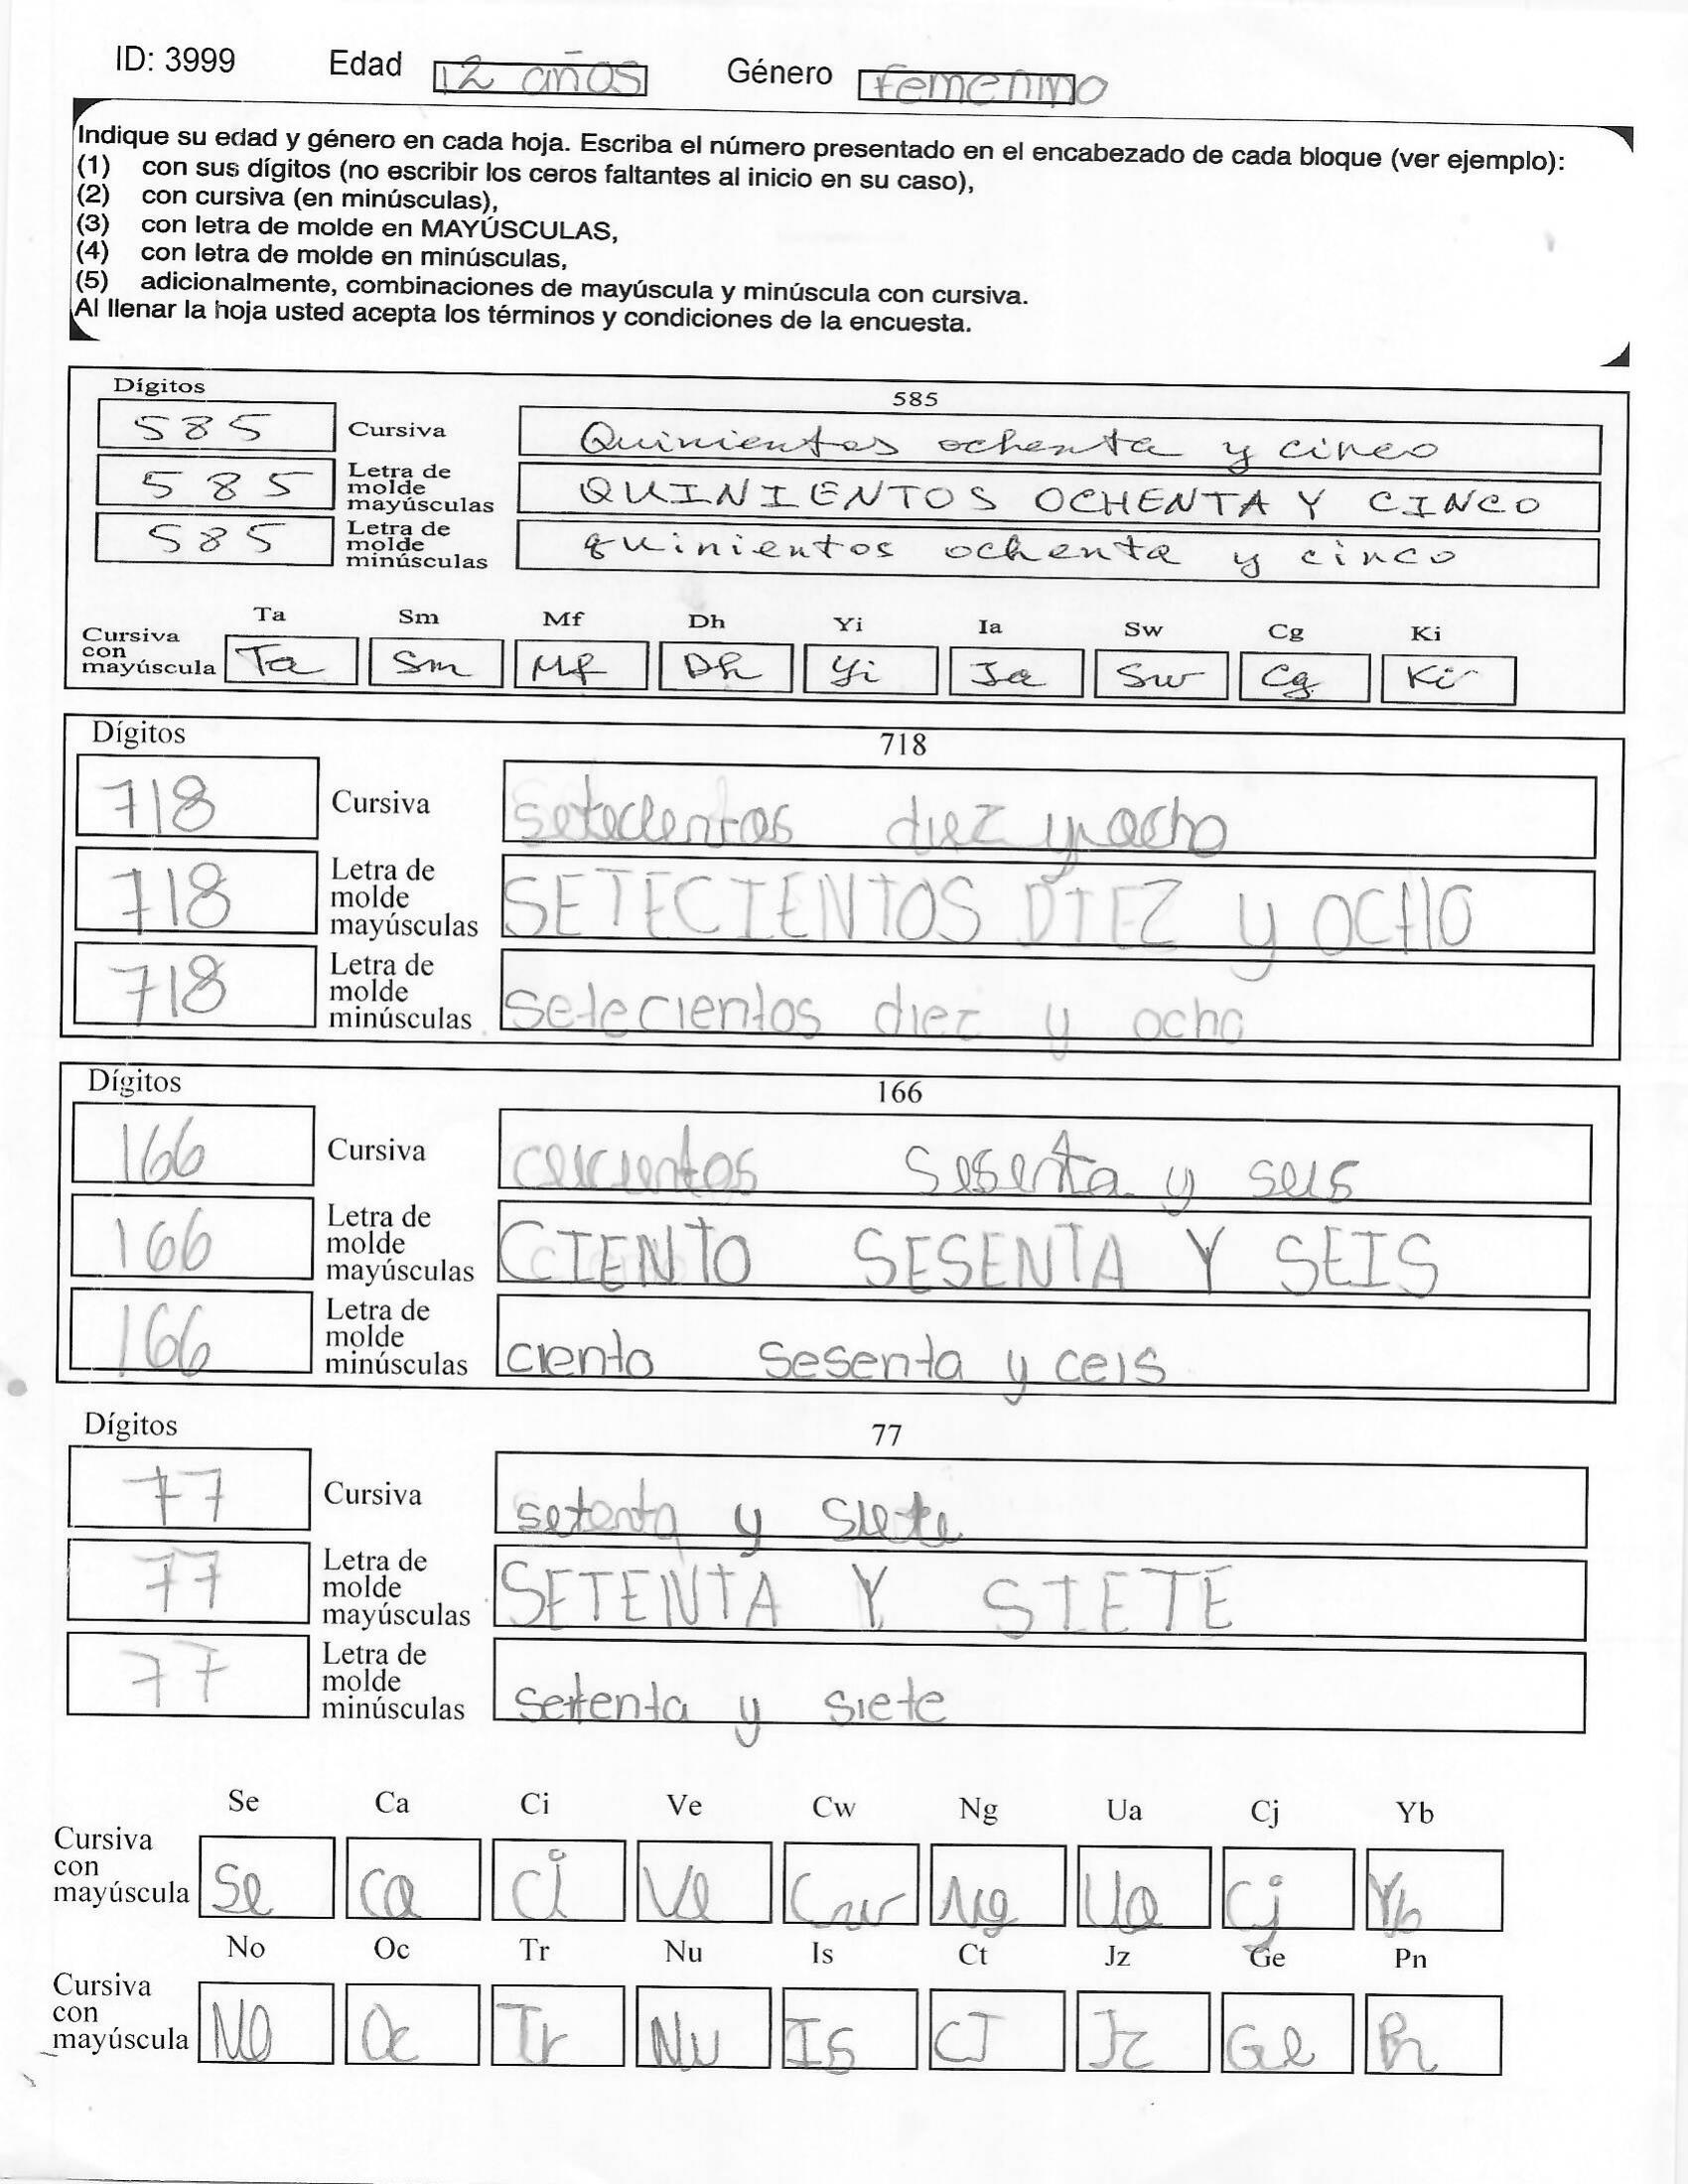 ID: 3999 Edad 12 años Género femenino
Indique su edad y género en cada hoja. Escriba el número presentado en el encabezado de cada bloque (ver ejemplo):
(1) con sus dígitos (no escribir los ceros faltantes al inicio en su caso),
(2) con cursiva (en minúsculas),
(3) con letra de molde en MAYÚSCULAS,
(4) con letra de molde en minúsculas,
(5) adicionalmente, combinaciones de mayúscula y minúscula con cursiva.
Al llenar la hoja usted acepta los términos y condiciones de la encuesta.
Dígitos 585
585 Cursiva Quinientos ochenta y cinco
585 Letra de molde mayúsculas QUINIENTOS OCHENTA Y CINCO
585 Letra de molde minúsculas quinientos ochenta y cinco
Ta Sm Mf Dh Yi Ia Sw Cg Ki
Cursiva con mayúscula Ta Sm Mf Dh Yi Ia Sw Cg Ki
Dígitos 718
718 Cursiva setecientos diez y ocho
718 Letra de molde mayúsculas SETECIENTOS DIEZ y OCHO
718 Letra de molde minúsculas setecientos diez y ocho
Dígitos 166
166 Cursiva sesenta y seis
166 Letra de molde mayúsculas CIENTO SESENTA Y SEIS
166 Letra de molde minúsculas ciento sesenta y ceis
Dígitos 77
77 Cursiva setenta y siete
77 Letra de molde mayúsculas SETENTA Y SIETE
77 Letra de molde minúsculas setenta y siete
Se Ca Ci Ve Cw Ng Ua Cj Yb
Cursiva con mayúscula Se Ca Ci Ve Cw Ng Ua Cj Yb
No Oc Tr Nu Is Ct Jz Ge Pn
Cursiva con mayúscula No Oc Tr Nu Is CT Jz Ge Pn